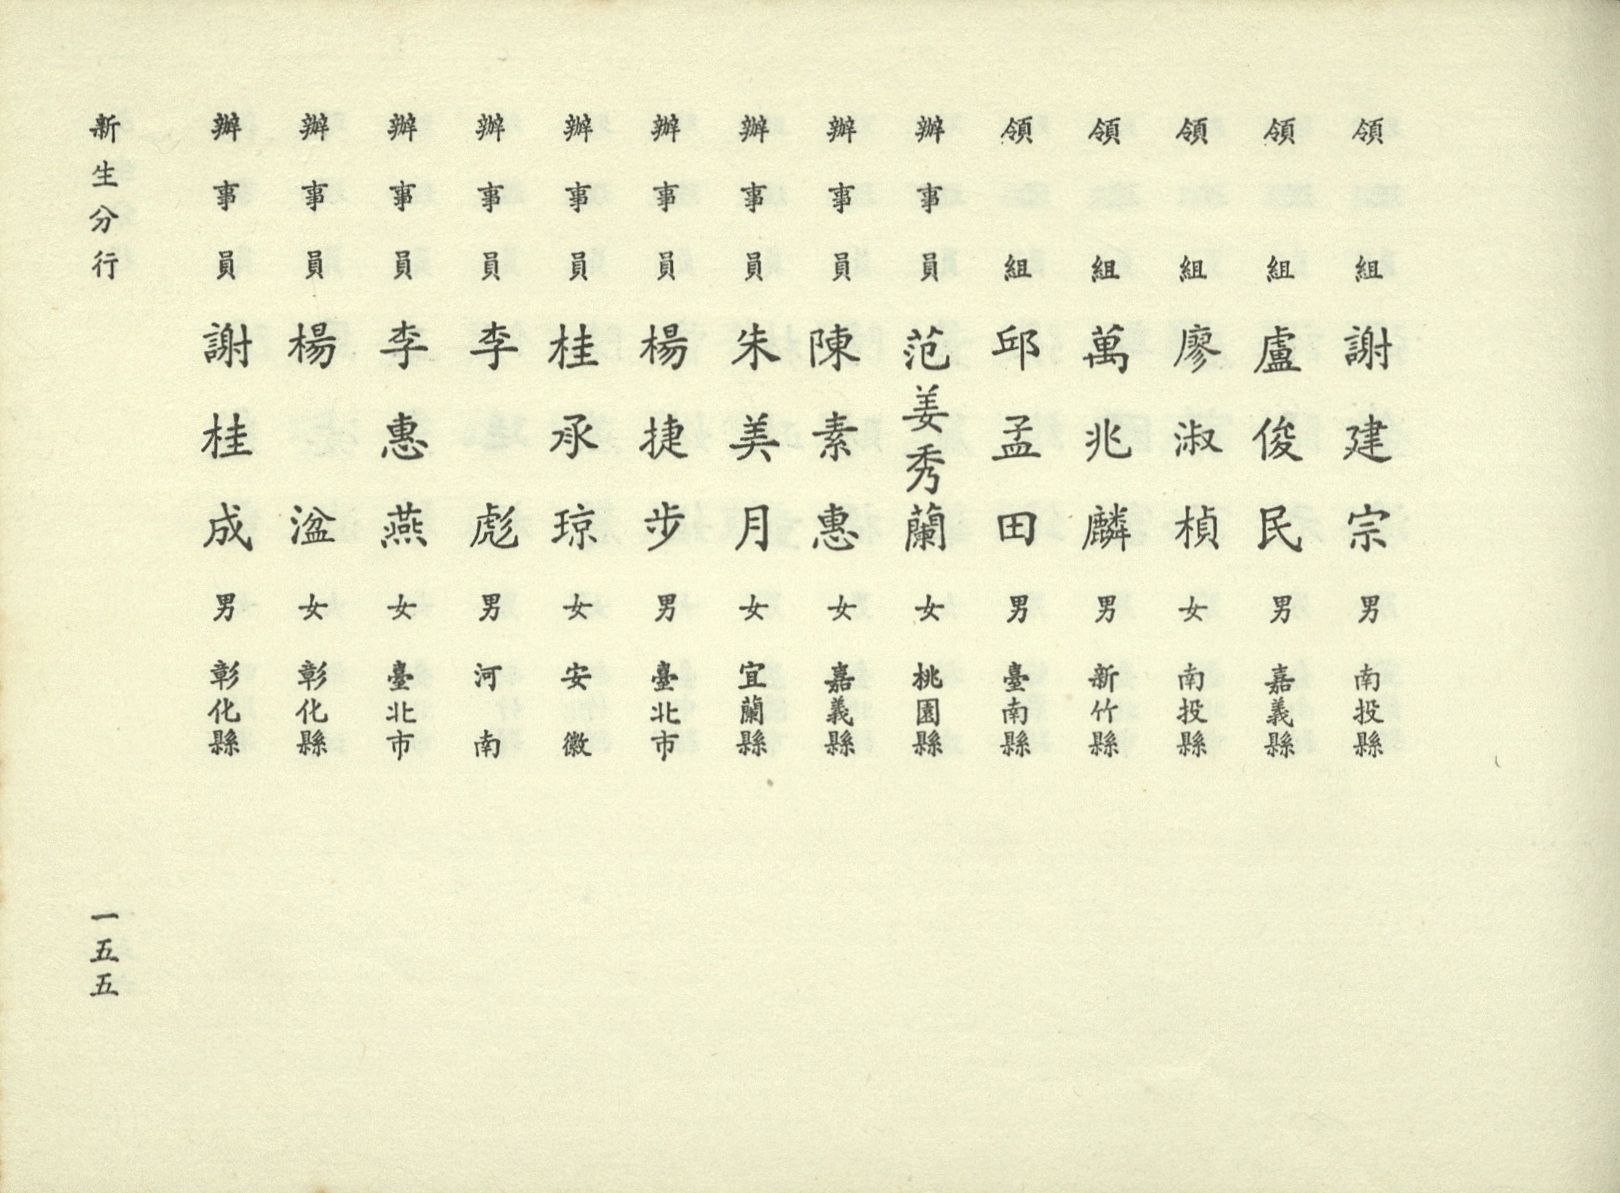 領組 謝建宗 男 南投縣
領組 盧俊民 男 嘉義縣
領組 廖淑楨 女 南投縣
領組 萬兆麟 男 新竹縣
領組 邱孟田 男 臺南縣
辦事員 范姜秀蘭 女 桃園縣
辦事員 陳素惠 女 嘉義縣
辦事員 朱美月 女 宜蘭縣
辦事員 楊捷步 男 臺北市
辦事員 桂承琼 女 安徽
辦事員 李彪 男 河南
辦事員 李惠燕 女 臺北市
辦事員 楊湓 女 彰化縣
辦事員 謝桂成 男 彰化縣
新生分行
一五五